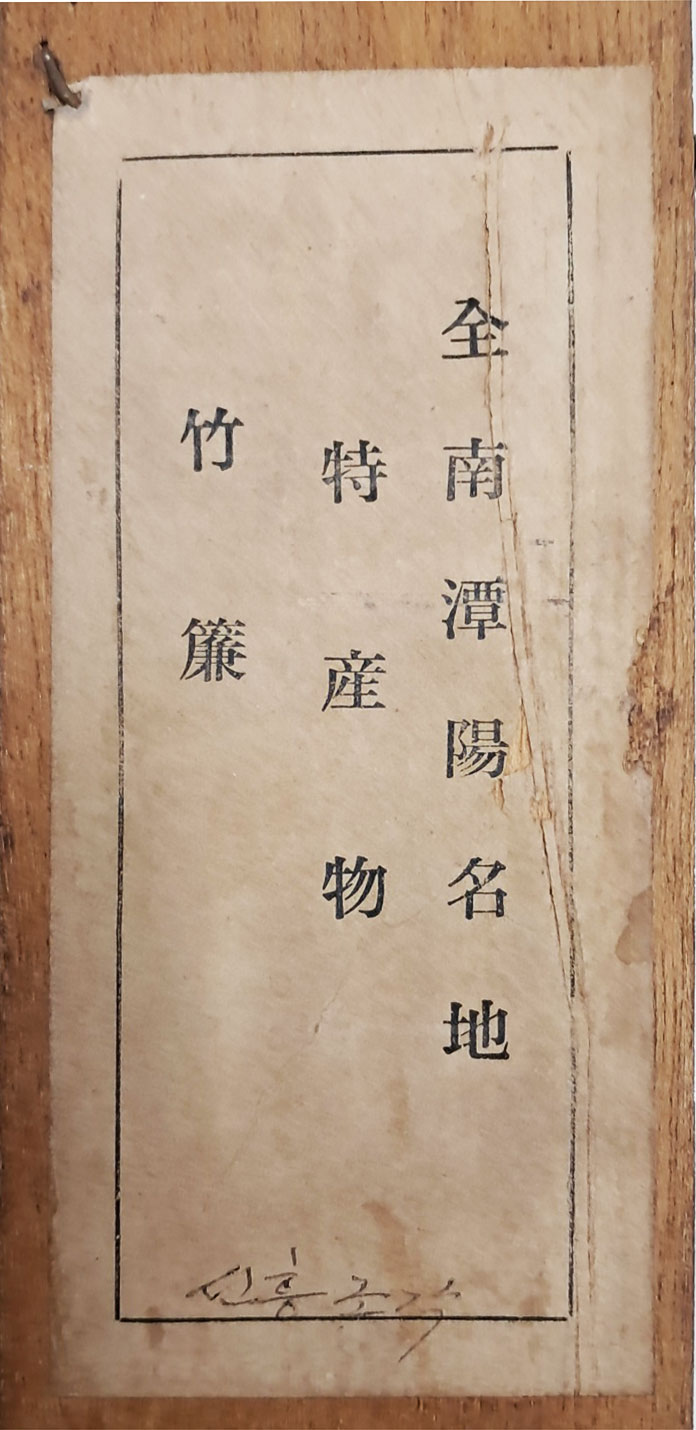 全南潭陽名地
特産物
竹簾
신흥조각